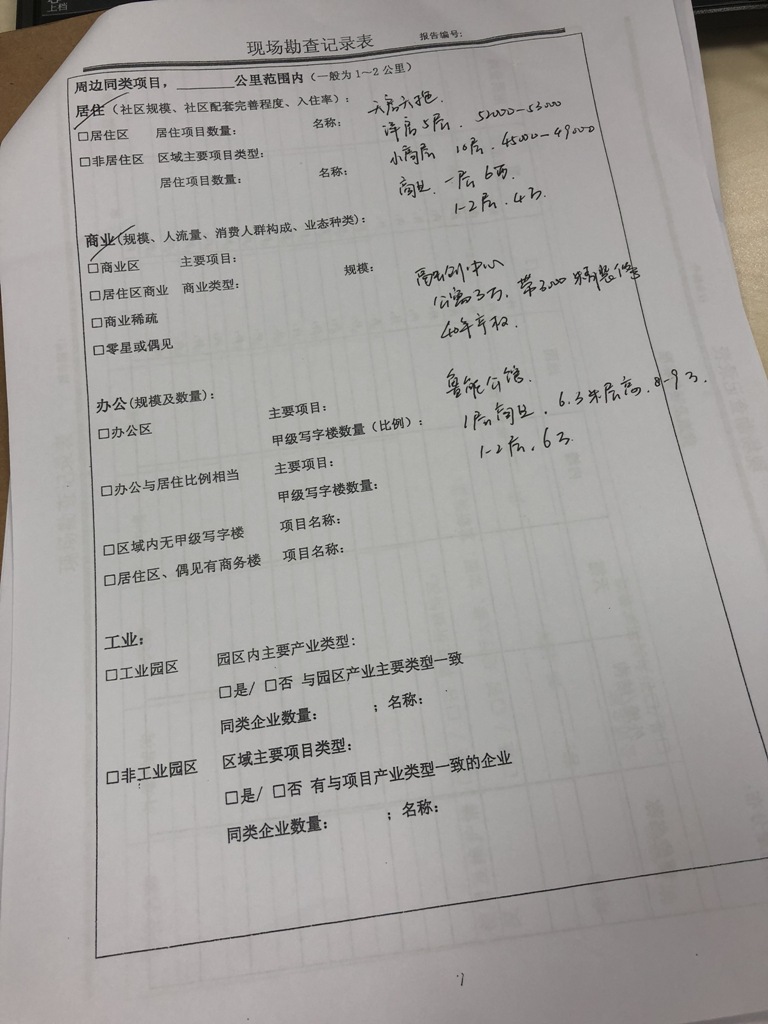 上档
现场勘查记录表 报告编号:
周边同类项目，________公里范围内（一般为1~2公里）
居住（社区规模、社区配套完善程度、入住率）：
□居住区 居住项目数量： 名称： 洋房5层、52000-53000
□非居住区 区域主要项目类型： 小高层 10层、45000-49000
居住项目数量： 名称： 商业、一层6万
1-2层、4万
商业(规模、人流量、消费人群构成、业态种类)：
□商业区 主要项目： 中心
□居住区商业 商业类型： 规模： 3万、带3000精装修
□商业稀疏 40年产权.
□零星或偶见
鲁能公馆.
办公(规模及数量)：
□办公区 主要项目： 1层商业、6.3米层高、8-9万.
甲级写字楼数量（比例）： 1-2层、6万
□办公与居住比例相当 主要项目：
甲级写字楼数量：
□区域内无甲级写字楼 项目名称：
□居住区、偶见有商务楼 项目名称：
工业：
□工业园区 园区内主要产业类型：
□是/ □否 与园区产业主要类型一致
同类企业数量： ；名称：
□非工业园区 区域主要项目类型：
□是/ □否 有与项目产业类型一致的企业
同类企业数量： ；名称：